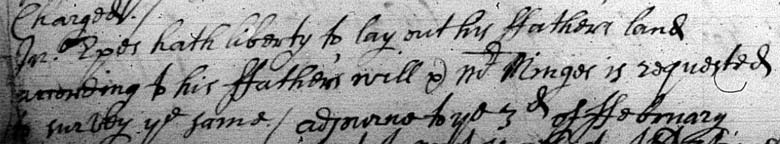 Charged /
Jn.º Epes hath liberty to lay out his ffathers land
according to his ffathers will & Mr Minges is requested
to survey ye same / adjourne to ye 3d of ffebruary